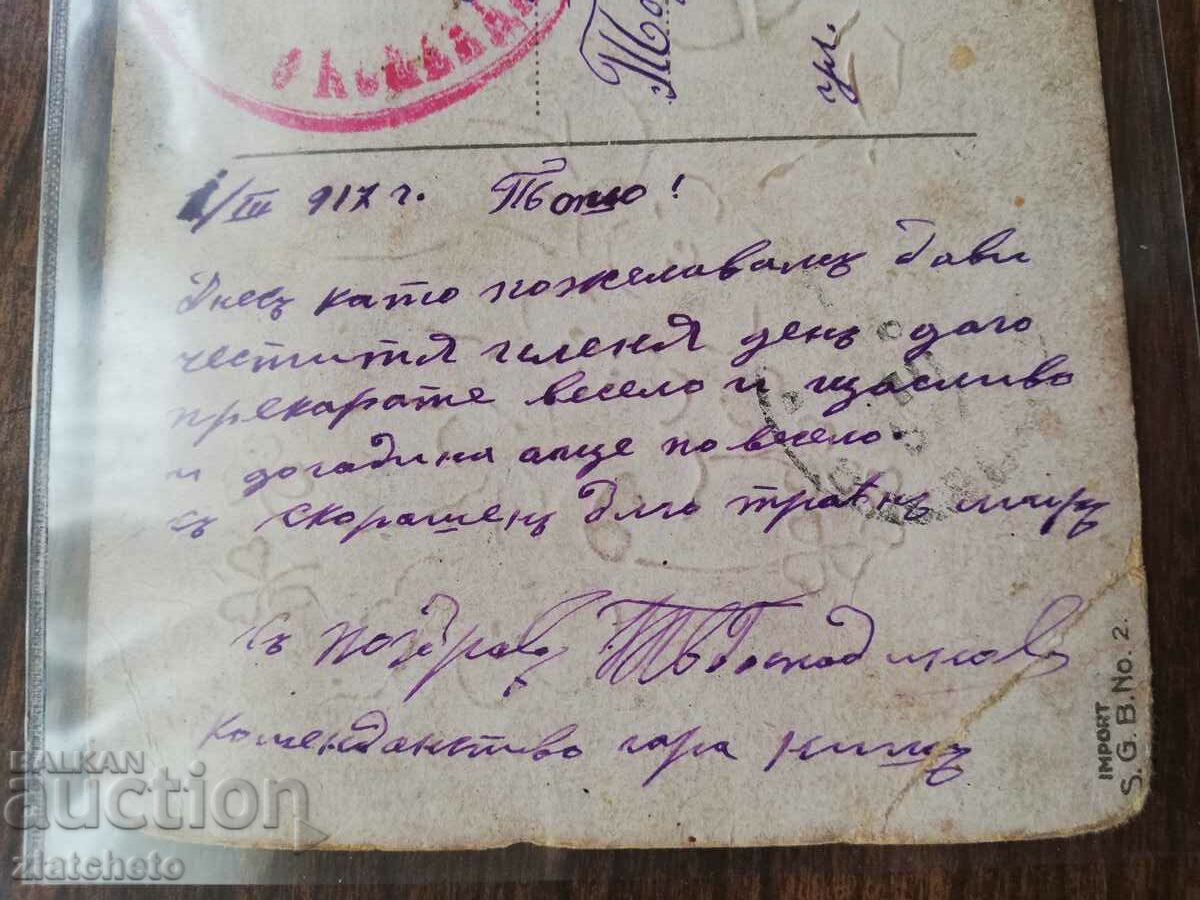 гр.
1/III 917 г. Тотю!
Днесъ като пожелавамъ Вави
честития именя денъ даго
прекарате весело и щасливо
и догадина аще по весело.
съ скорашенъ благо траенъ миръ
Съ поздравъ
комендантство гара Нишъ
IMPORT
S.G.B. No. 2.
BALKAN
auction
zlatcheto